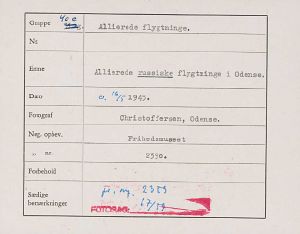 Gruppe 40 e Allierede flygtninge.
Nr.
Emne Allierede russiske flygtninge i Odense.
Dato c. 16/5 1945.
Fotograf Christoffersen, Odense.
Neg. opbev. Frihedsmuseet
„ nr. 2390.
Forbehold
Særlige
bemærkninger
FOTOGRAF